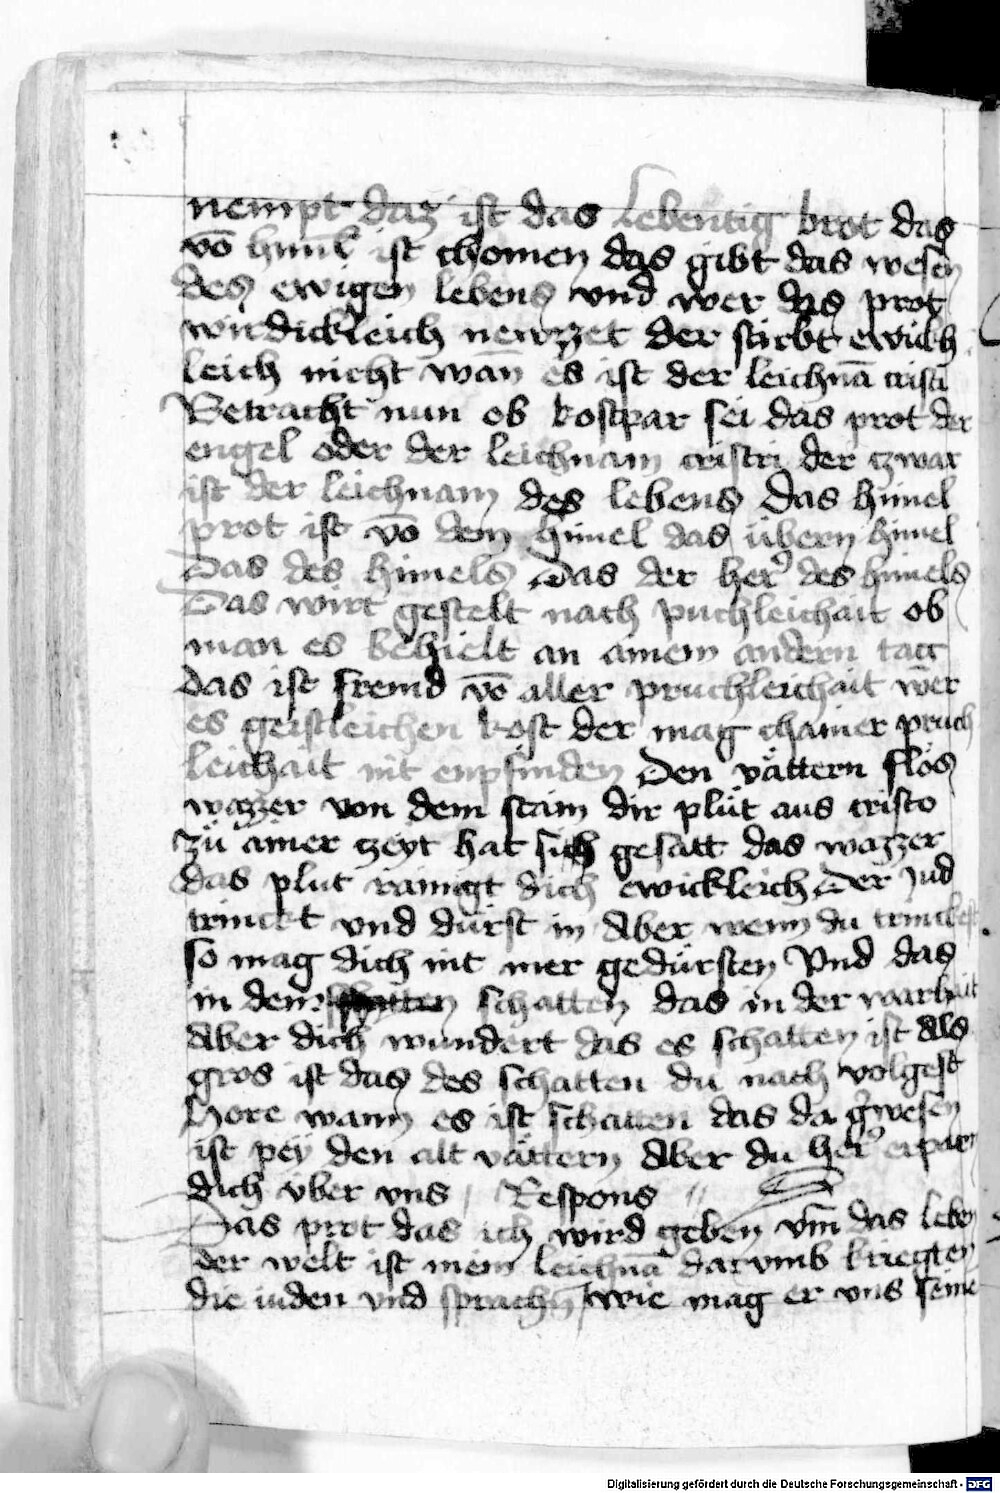 nempt daz ist das lebentig brot das
vō himl ist chomen das gibt das wesen
des ewigen lebens vnd wer das prot
wirdickleich newzzet der stirbt ewickh
leich nicht wān es ist der leichnā cristi
Betracht nun ob kostpar sei das prot der
engel oder der leichnam cristri der czwar
ist der leichnam des lebens Das himel
prot ist vō dem himel das übern himel
Das des himels Das der her᷑ des himels
Das wirt gestelt nach pruchleichait ob
man es behielt an ainem andern tag
das ist fremd vō aller pruchleichait wer
es geistleichen kost der mag chainer pruch
leichait nit enpfinden Den vättern flös
wazzer von dem stain dir plüt aus cristo
zü ainer czeyt hat sich gesatt das wazzer
das plut rainigt dich ewickleich Der Jud
trinckt vnd dürst in Aber wenn du trinckest
so mag dich nit mer gedürsten Vnd das
in dem schatten das in der warhait
Aber dich wundert das es schatten ist als
gros ist das des schatten du nach volgest
Hore wann es ist schatten das da gwesen
ist pey den alt vättern Aber du her᷑ erparm
dich über vns Respons
Das prot das ich wird geben vm̄ das leben
der welt ist mein leichnā darvmb kriegten
die iuden vnd sprachn̄ wie mag er vns seine
Digitalisierung gefördert durch die Deutsche Forschungsgemeinschaft - DFG